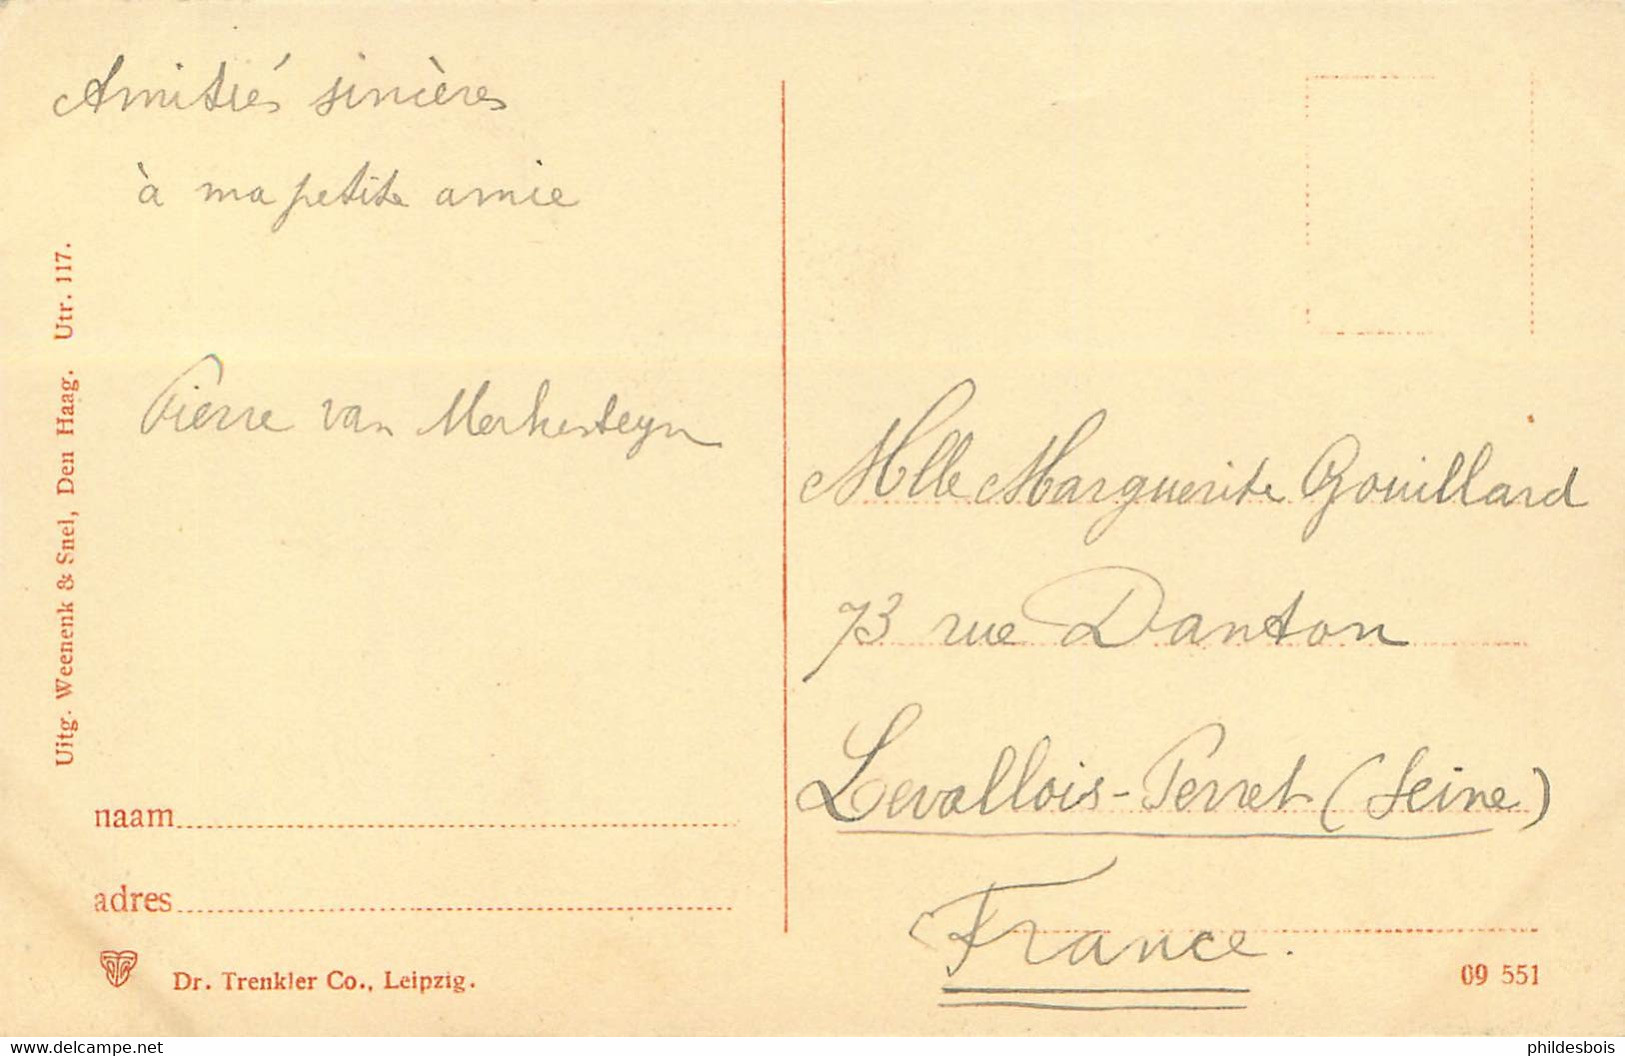 Amitiés sincères
à ma petite amie
Pierre van Merkesteyn
Uitg. Weenenk & Snel, Den Haag. Utr. 117.
naam
adres
Dr. Trenkler Co., Leipzig.
Mlle Marguerite Gouillard
73 rue Danton
Levallois-Perret (Seine)
France.
09 551
www.delcampe.net
phildesbois